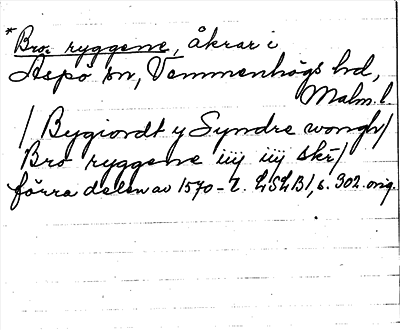 * Bro ryggene, åkrar i
Aspö sn, Vemmenhögs hd,
Malm. l.
/ Bygiordt y Syndre wongh /
Bro ryggene iiij iiij skr /
förra delen av 1570-t. LSLB1, s. 302. orig.